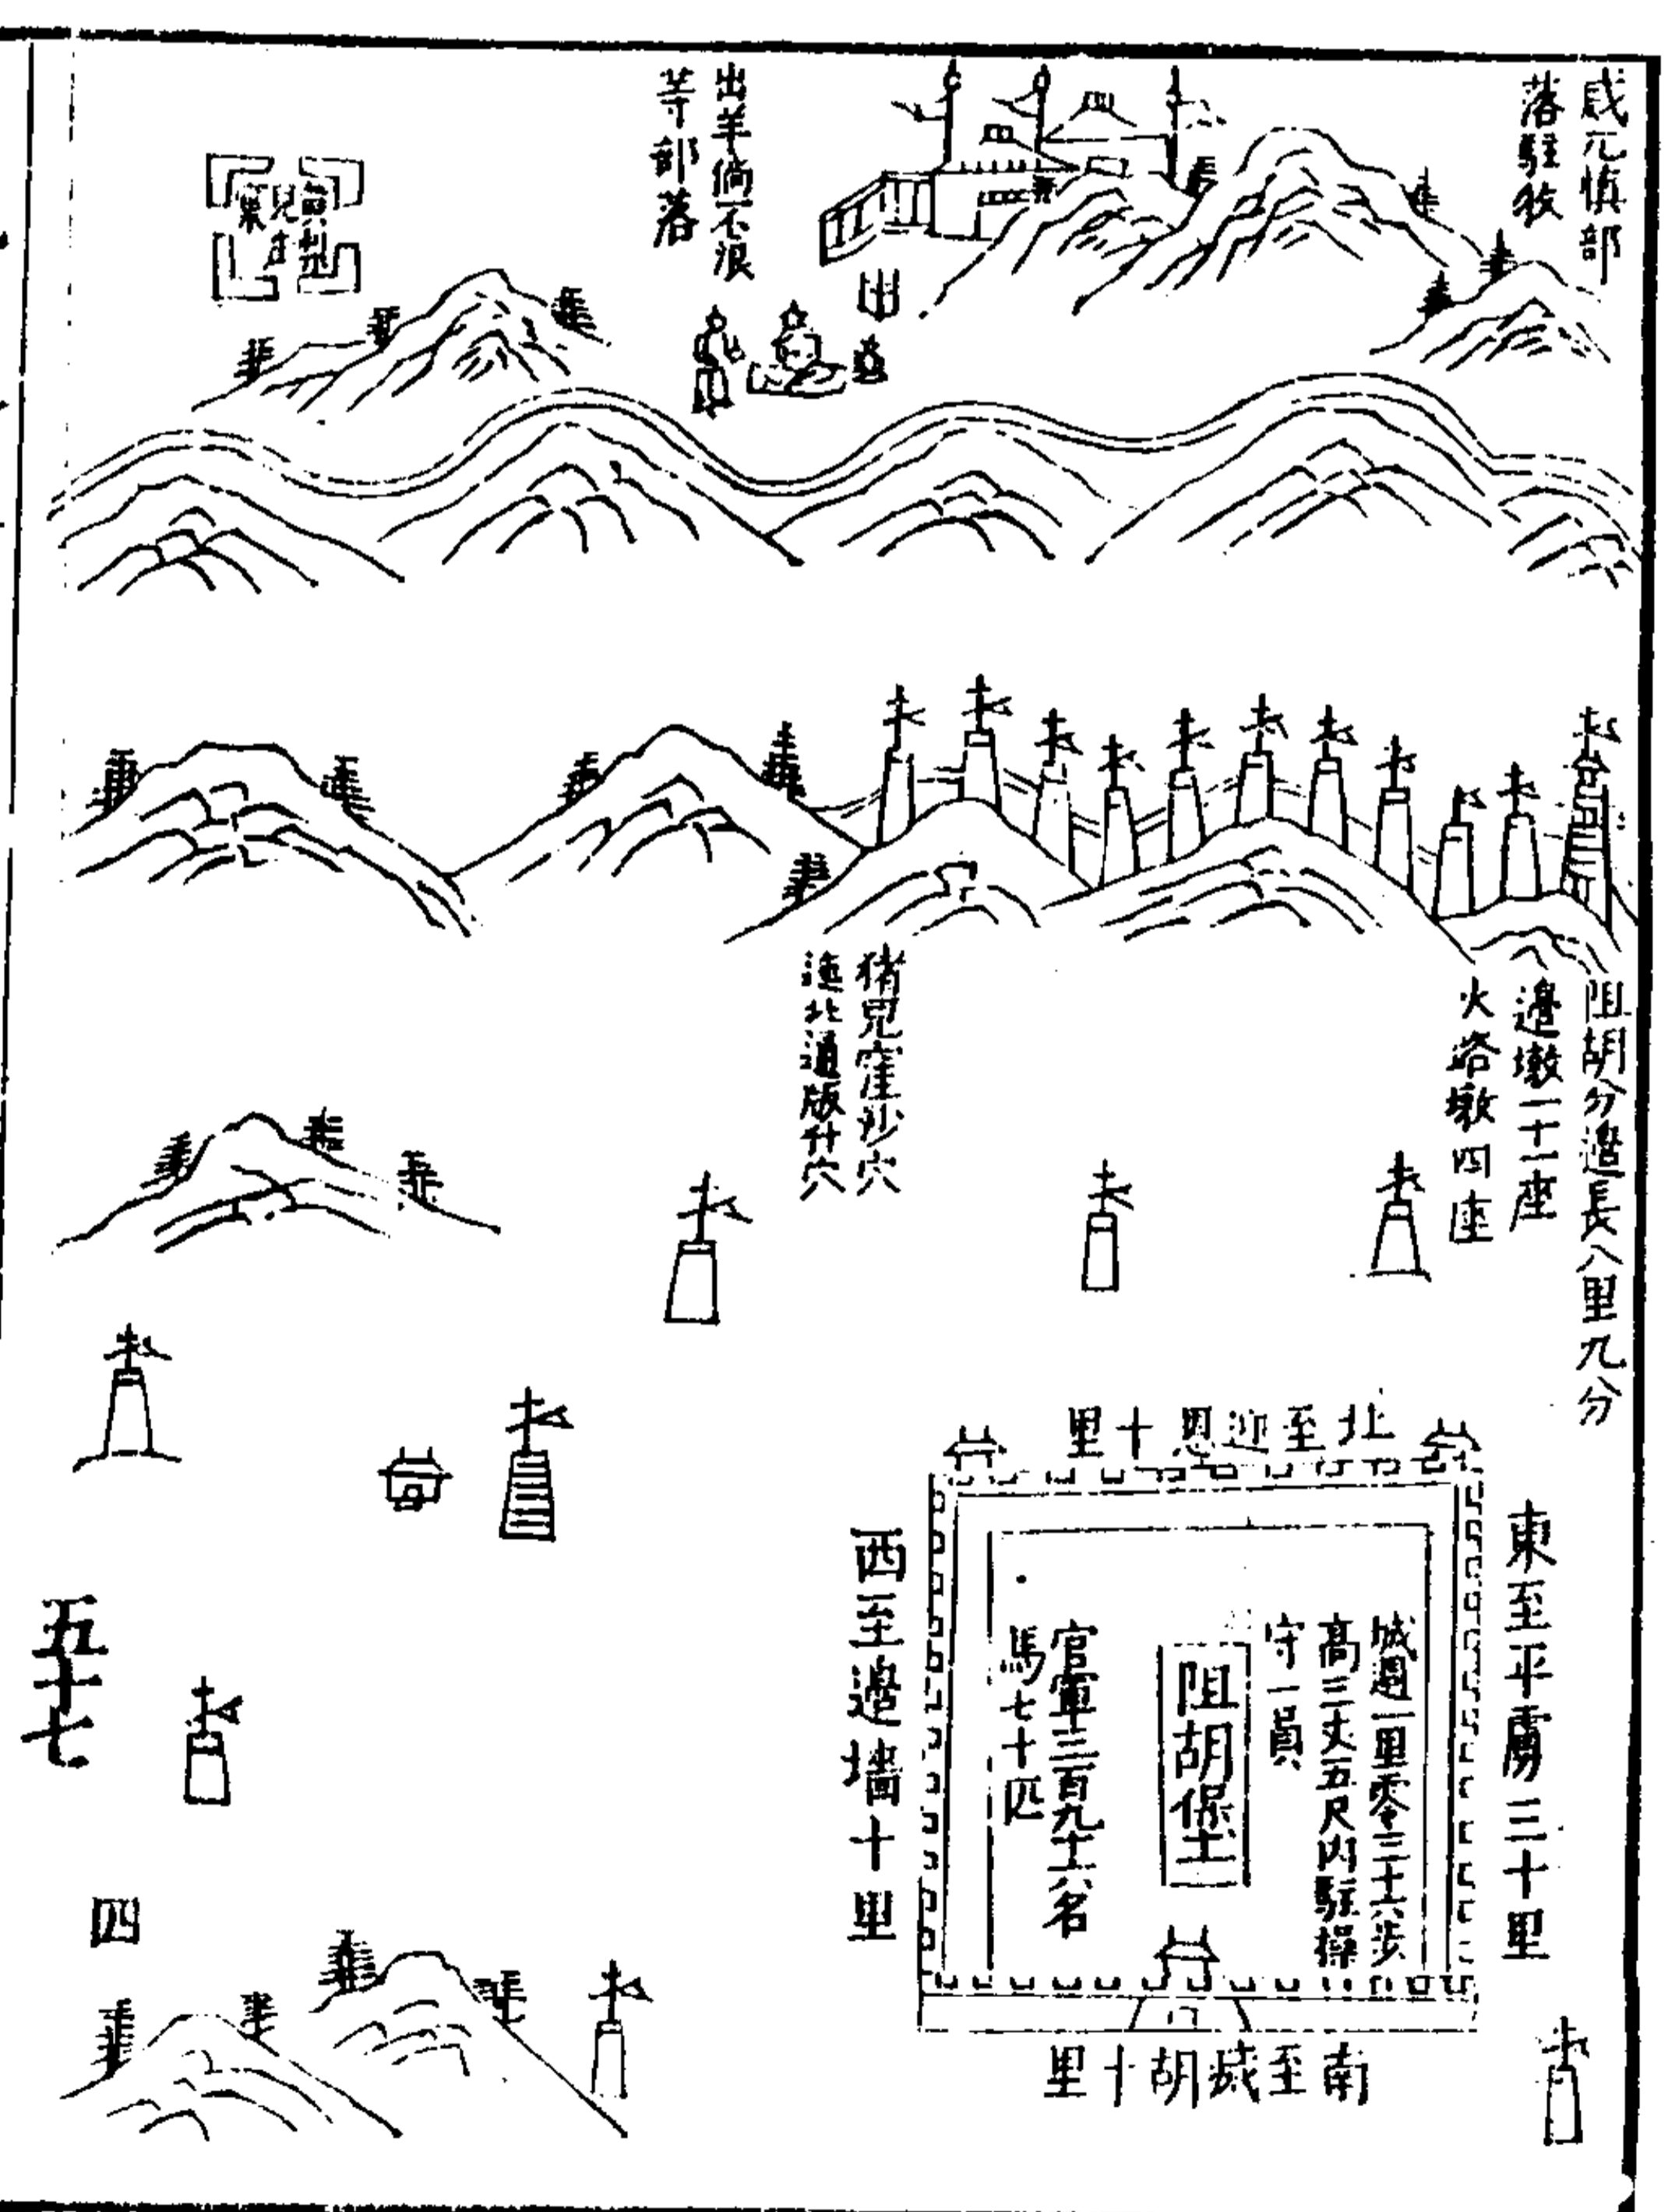 落駐牧
出羊倘不浪
等部落
阻胡分邊長八里九分
邊墩一十一座
火路墩四座
猪兒窪沙穴
迤北通版升穴
北至迎恩十里
東至平虜三十里
城週一里零三十六步
高三丈五尺內駐操
守一員
阻胡堡
官軍三百九十六名
馬七十匹
西至邊墻十里
南至滅胡十里
五十七
四